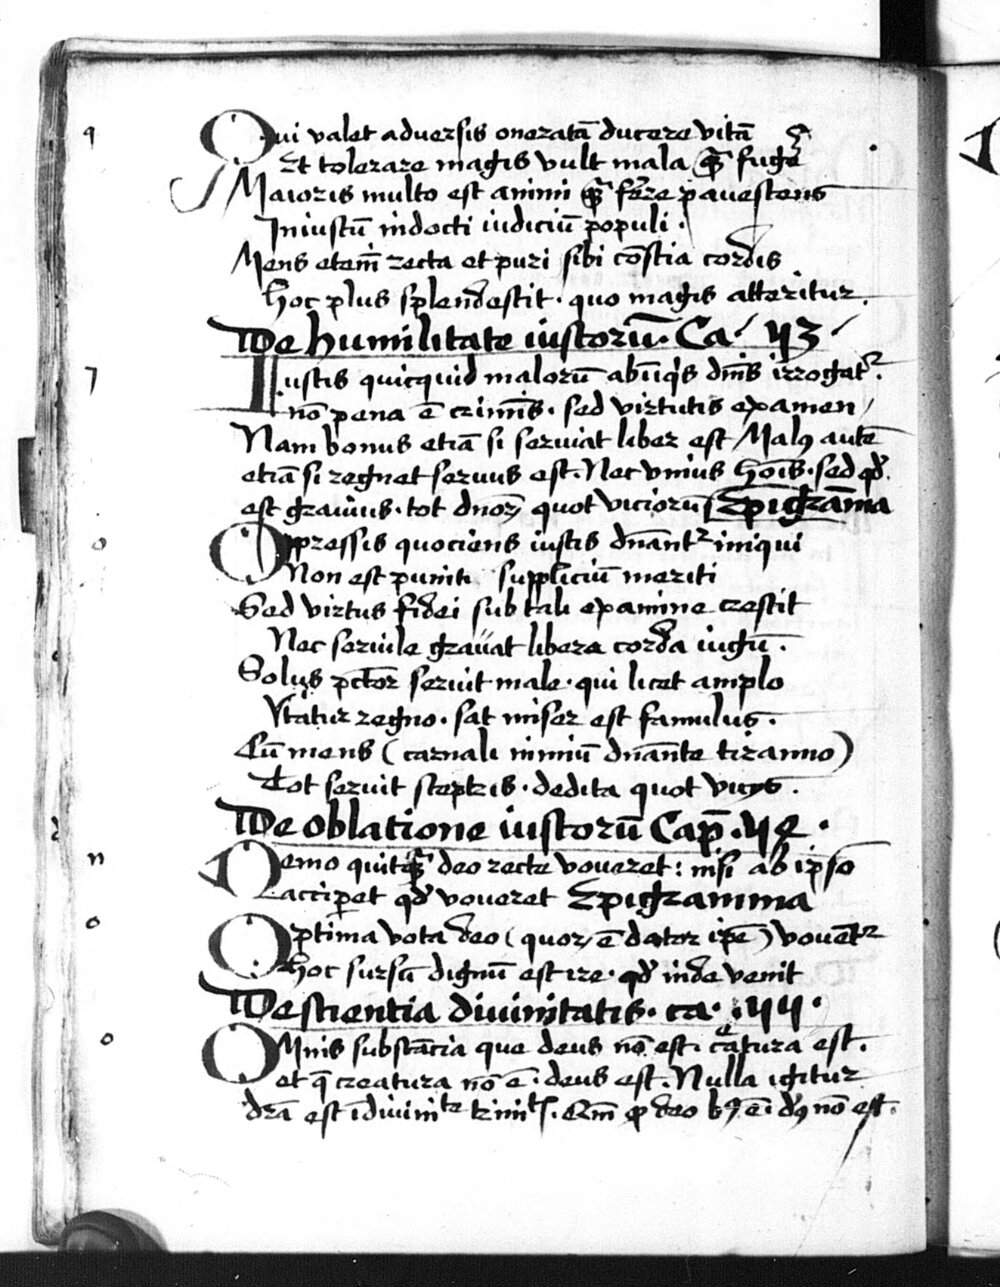 q
Qui valet aduersis oneratā ducere vitā
Et tolerare magis vult mala quā fugē
Maioris multo est animi quā ferre pauescens
Iniustū indocti iudiciū populi .
Mens etenī recta et puri sibi cōscia cordis
hoc plus splendescit . quo magis atteritur .
De humilitate iustorū . Ca . 43 .
I
Iustis quicquid malorū ab iniqis dnīs irrogatr .
nō pena ē criminis . sed virtutis examen
Nam bonus etiā si seruiat liber est Malꝰ autē
etiā si regnet seruus est . Nec vnius hoīs . sed qđ
est grauius . tot dnoꝝ quot viciorū Epigrāma
o
Oppressis quociens iustis dnānt iniqui
Non est puniti suppliciū meriti
Sed virtus fidei sub tali examine crescit
Nec seruile grauat libera corda iugū .
Solus pctor seruit male . qui licet amplo
Vtatur regno . sat miser est famulus .
Cū mens ( carnali nimiū dnānte tiranno )
Tot seruit sceptris . dedita quot vicijs .
De oblatione iustorū Cap . 44 .
n
Nemo quitqā deo recte voueret : nisi ab ipso
acciperet qđ voueret Epigramma
o
Optima vota deo ( quoꝝ ē dator ipē ) vouentr
Hoc sursū dignū est ire . qđ inde venit
De scientia diuinitatis . ca .
o
Omnis substācia que deus nō est . creatura est .
et q̄ creatura nō ē . deus est . Nulla igitur
dr̄a est ī diuinite trinitīs . Qm̄ qđ deo bꝰ ē . dꝰ nō est .